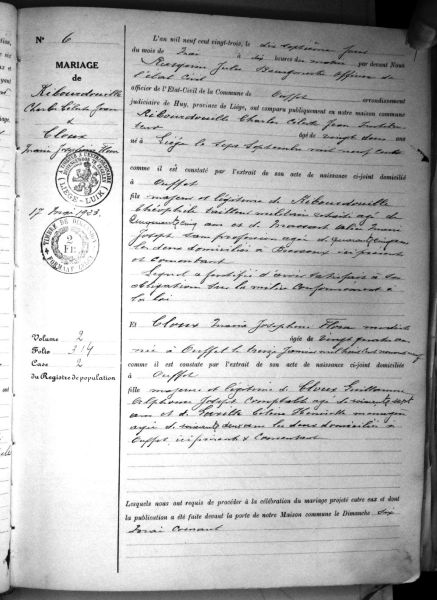 N° 6
MARIAGE
de
Ribourdouille
Charles Céleste Jean
&
Cloux
Marie Josephine Flora
LIEGE - LUIK
17 Mai 1923.
2
Fr.
Volume 2
Folio 314
Case 2
du Registre de population
L'an mil neuf cent vingt-trois, le dix septième jour
du mois de Mai à six heures du matin, par devant Nous
Jules officier de
l'état Civil
officier de l'Etat-Civil de la Commune de Ouffet arrondissement
judiciaire de Huy, province de Liége, ont comparu publiquement en notre maison commune
Ribourdouille Charles Céleste Jean
âgé de vingt deux ans
né à Liége le sept Septembre mil neuf cent
comme il est constaté par l'extrait de son acte de naissance ci-joint domicilié
à Ouffet
fils majeur et légitime de Ribourdouille
Théophile tailleur militaire agé de
cinquante cinq ans et de Marie
Joseph sans profession agée de quarante cinq ans
les deux domiciliés à ici présents
et consentant
Lequel a justifié d'avoir satisfait à ses
obligations sur la milice conformément à
la loi
Et Cloux Marie Josephine Flora
âgée de vingt quatre ans
née à Ouffet le treize Janvier mil huit cent nonante neuf
comme il est constaté par l'extrait de son acte de naissance ci-joint domiciliée
à Ouffet
fille majeure et légitime de Cloux Guillaume
Alphonse Joseph Comptable agé de sept
ans et de Céline Henriette ménagère
agée de deux ans les deux domiciliés à
Ouffet, ici présents & consentant
Lesquels nous ont requis de procéder à la célébration du mariage projeté entre eux et dont
la publication a été faite devant la porte de notre Maison commune le Dimanche six
Mai Courant